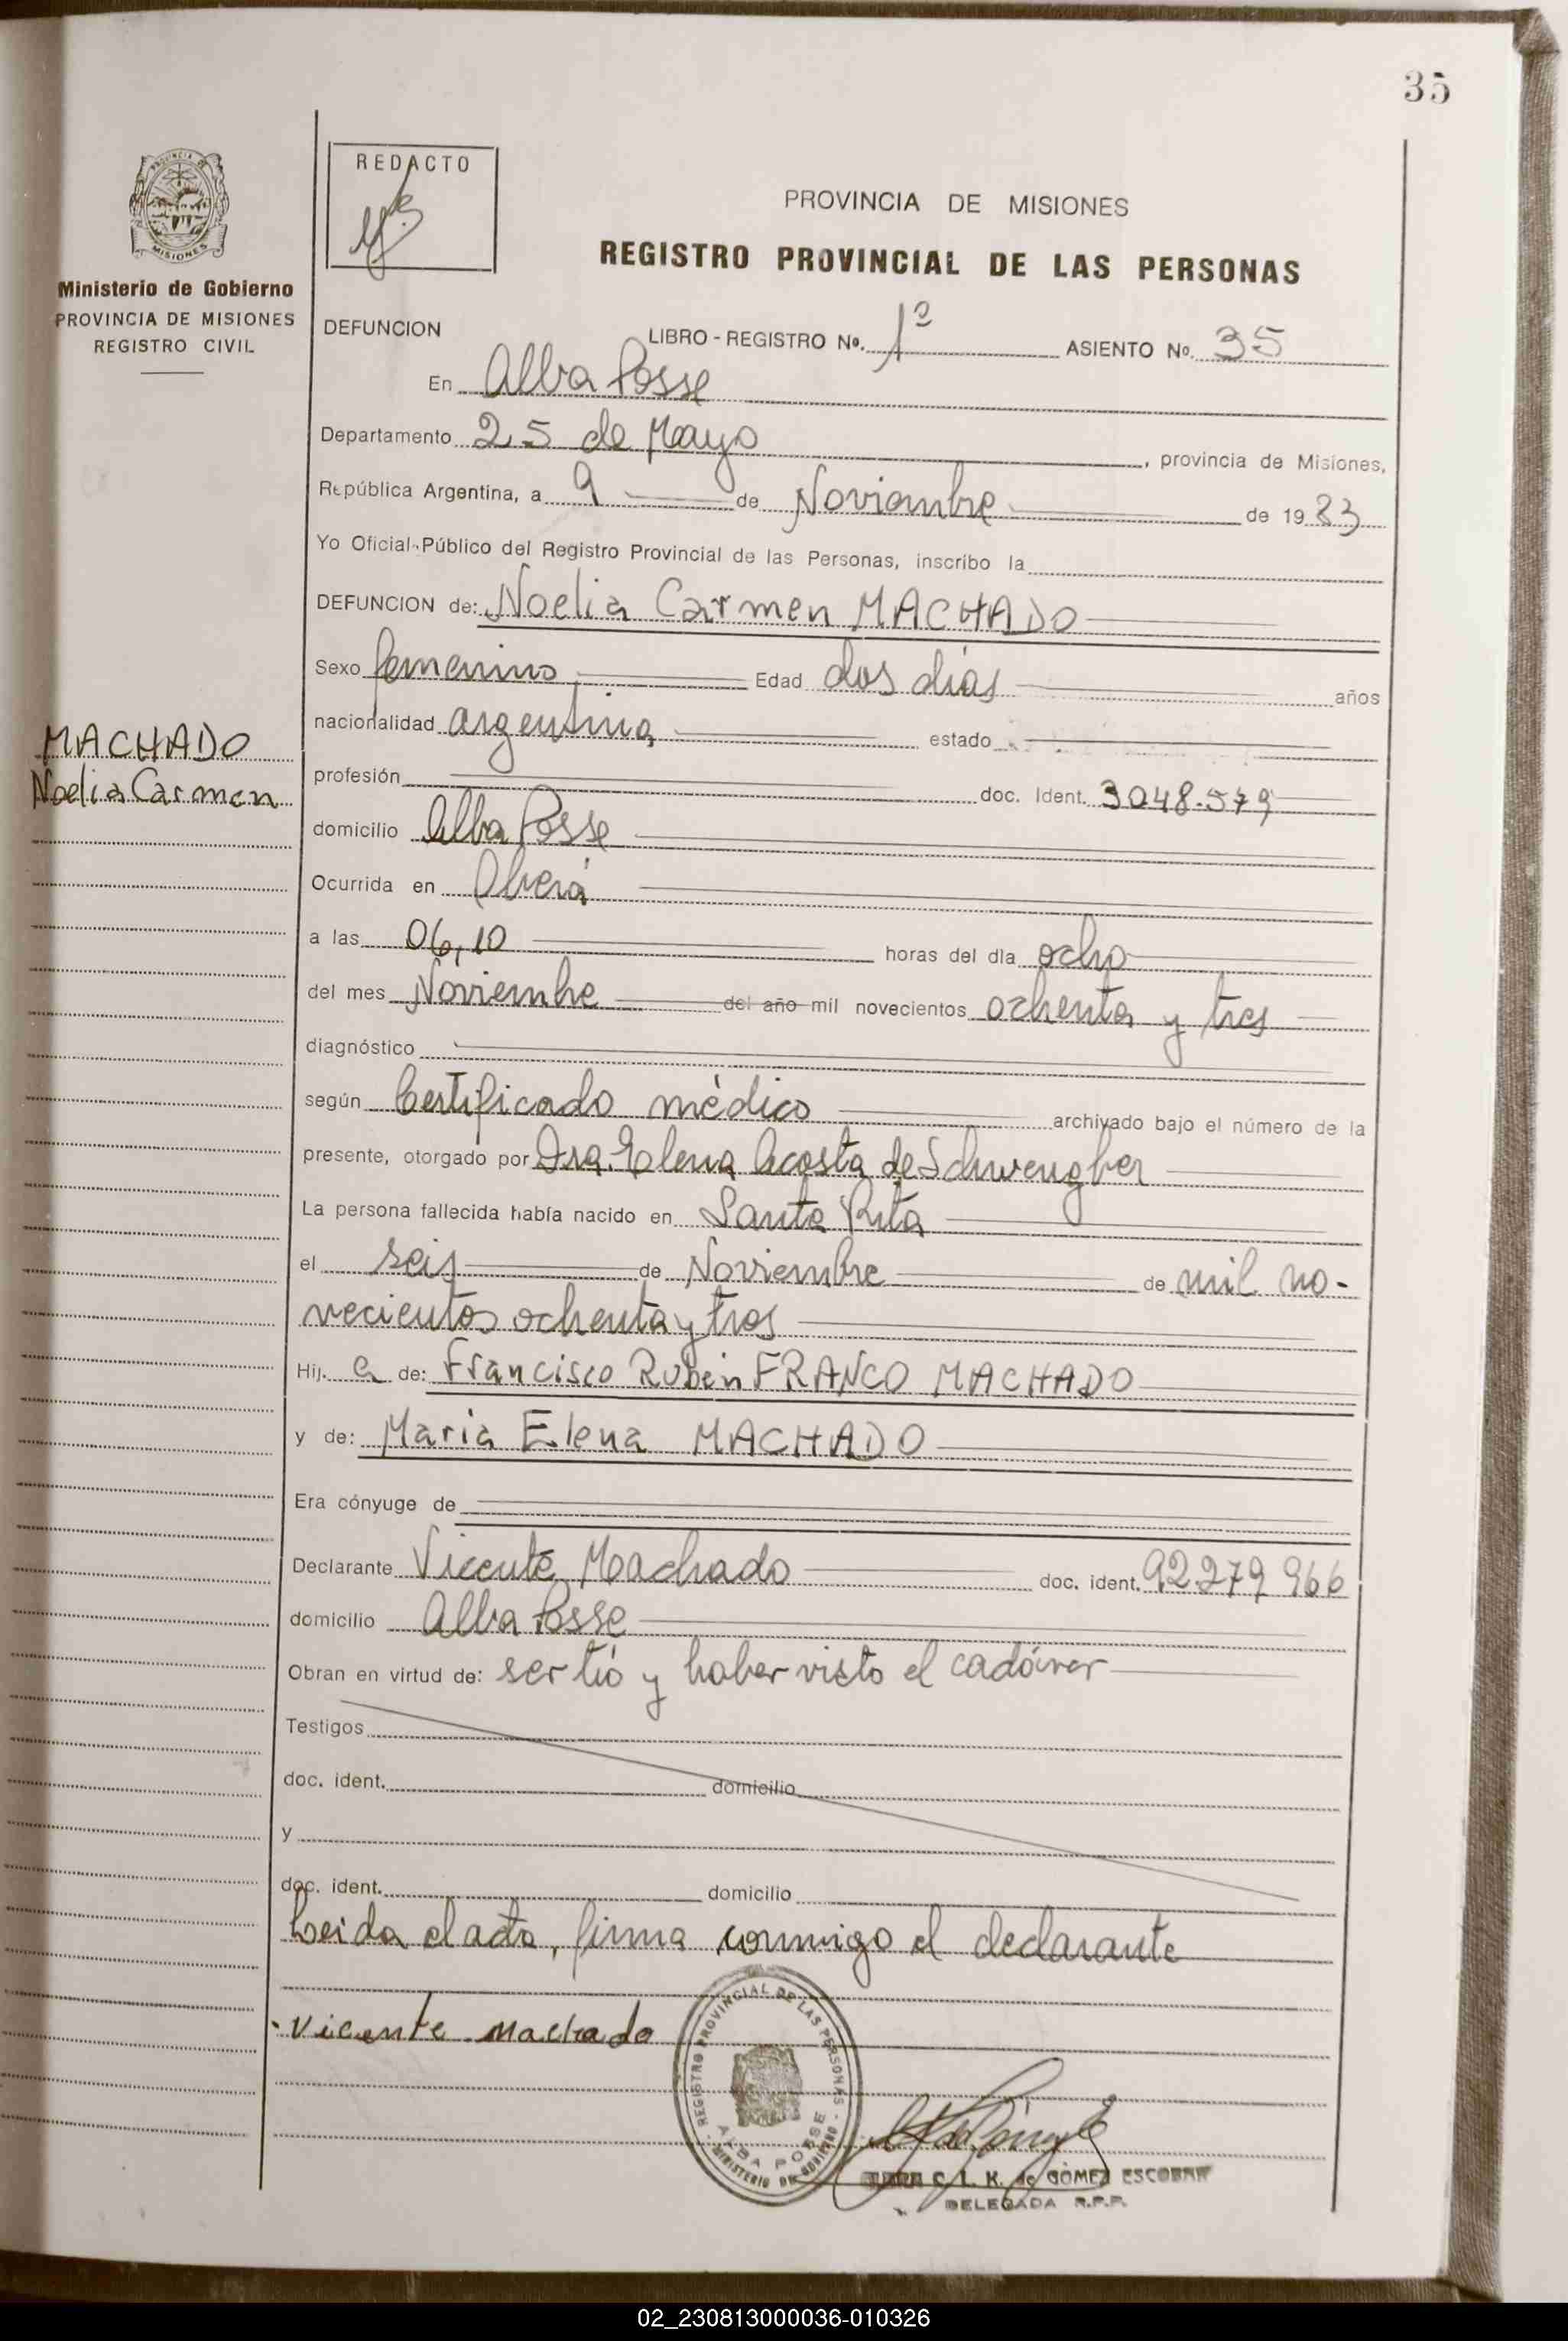 35
PROVINCIA DE MISIONES
Ministerio de Gobierno
PROVINCIA DE MISIONES
REGISTRO CIVIL
REDACTO
PROVINCIA DE MISIONES
REGISTRO PROVINCIAL DE LAS PERSONAS
DEFUNCION LIBRO - REGISTRO Nº. 1º ASIENTO Nº. 35
En Alba Posse
Departamento 25 de Mayo, provincia de Misiones,
República Argentina, a 9 de Noviembre de 1983
Yo Oficial Público del Registro Provincial de las Personas, inscribo la
DEFUNCION de: Noelia Carmen MACHADO
Sexo femenino Edad dos días años
nacionalidad argentina estado
MACHADO
Noelia Carmen
profesión doc. Ident. 3048.579
domicilio Alba Posse
Ocurrida en Oberá
a las 06,10 horas del día ocho
del mes Noviembre del año mil novecientos ochenta y tres
diagnóstico
según Certificado médico archivado bajo el número de la
presente, otorgado por Dra. Elena Acosta de Schwengber
La persona fallecida había nacido en Santa Rita
el seis de Noviembre de mil no-
vecientos ochenta y tres
Hij. a de: Francisco Rubén FRANCO MACHADO
y de: Maria Elena MACHADO
Era cónyuge de
Declarante Vicente Machado doc. ident. 92.279 966
domicilio Alba Posse
Obran en virtud de: ser tío y haber visto el cadáver
Testigos
doc. ident. domicilio
y
doc. ident. domicilio
Leida el acta, firma conmigo el declarante
Vicente Machado
REGISTRO PROVINCIAL DE LAS PERSONAS
ALBA POSSE
MINISTERIO DE GOBIERNO
C. L. K. de GÓMEZ ESCOBAR
DELEGADA R.P.P.
02_230813000036-010326